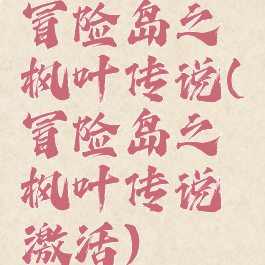 冒险岛之
枫叶传说(
冒险岛之
枫叶传说
激活)